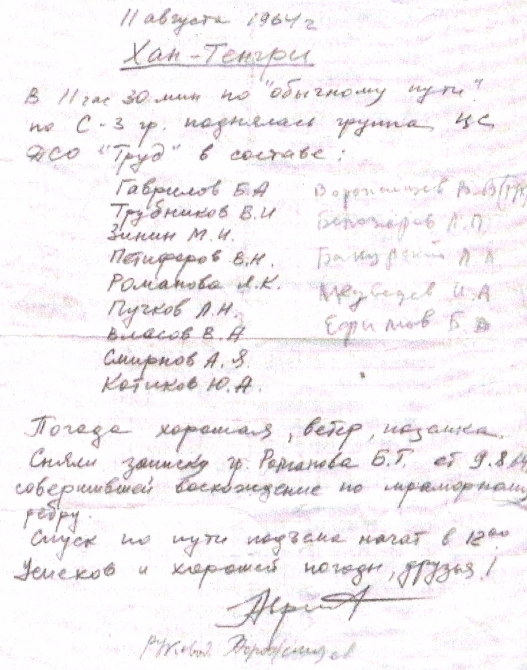 11 августа 1964 г
Хан-Тенгри
В 11 час 30 мин по "обычному пути"
по С-З гр. поднялась группа ЦС
ДСО "Труд" в составе:
Гаврилов Б А
Трубников В.И
Зинин М.И.
Петифоров В.Н.
Романова А.К.
Пучков Л.Н.
Власов В.А
Смирнов А.Я.
Котиков Ю.А.
Медведев И.А
Ефимов Б
Погода хорошая, ветер, поземка.
Сняли записку гр. Романова Б.Т. от 9.8.64
совершившей восхождение по мраморному
ребру.
Спуск по пути подъема начат в 12 00
Успехов и хорошей погоды, друзья!